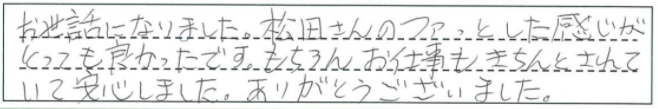 お世話になりました。松田さんのファっとした感じが
とっても良かったです。もちろん、お仕事もきちんとされて
いて安心しました。ありがとうございました。